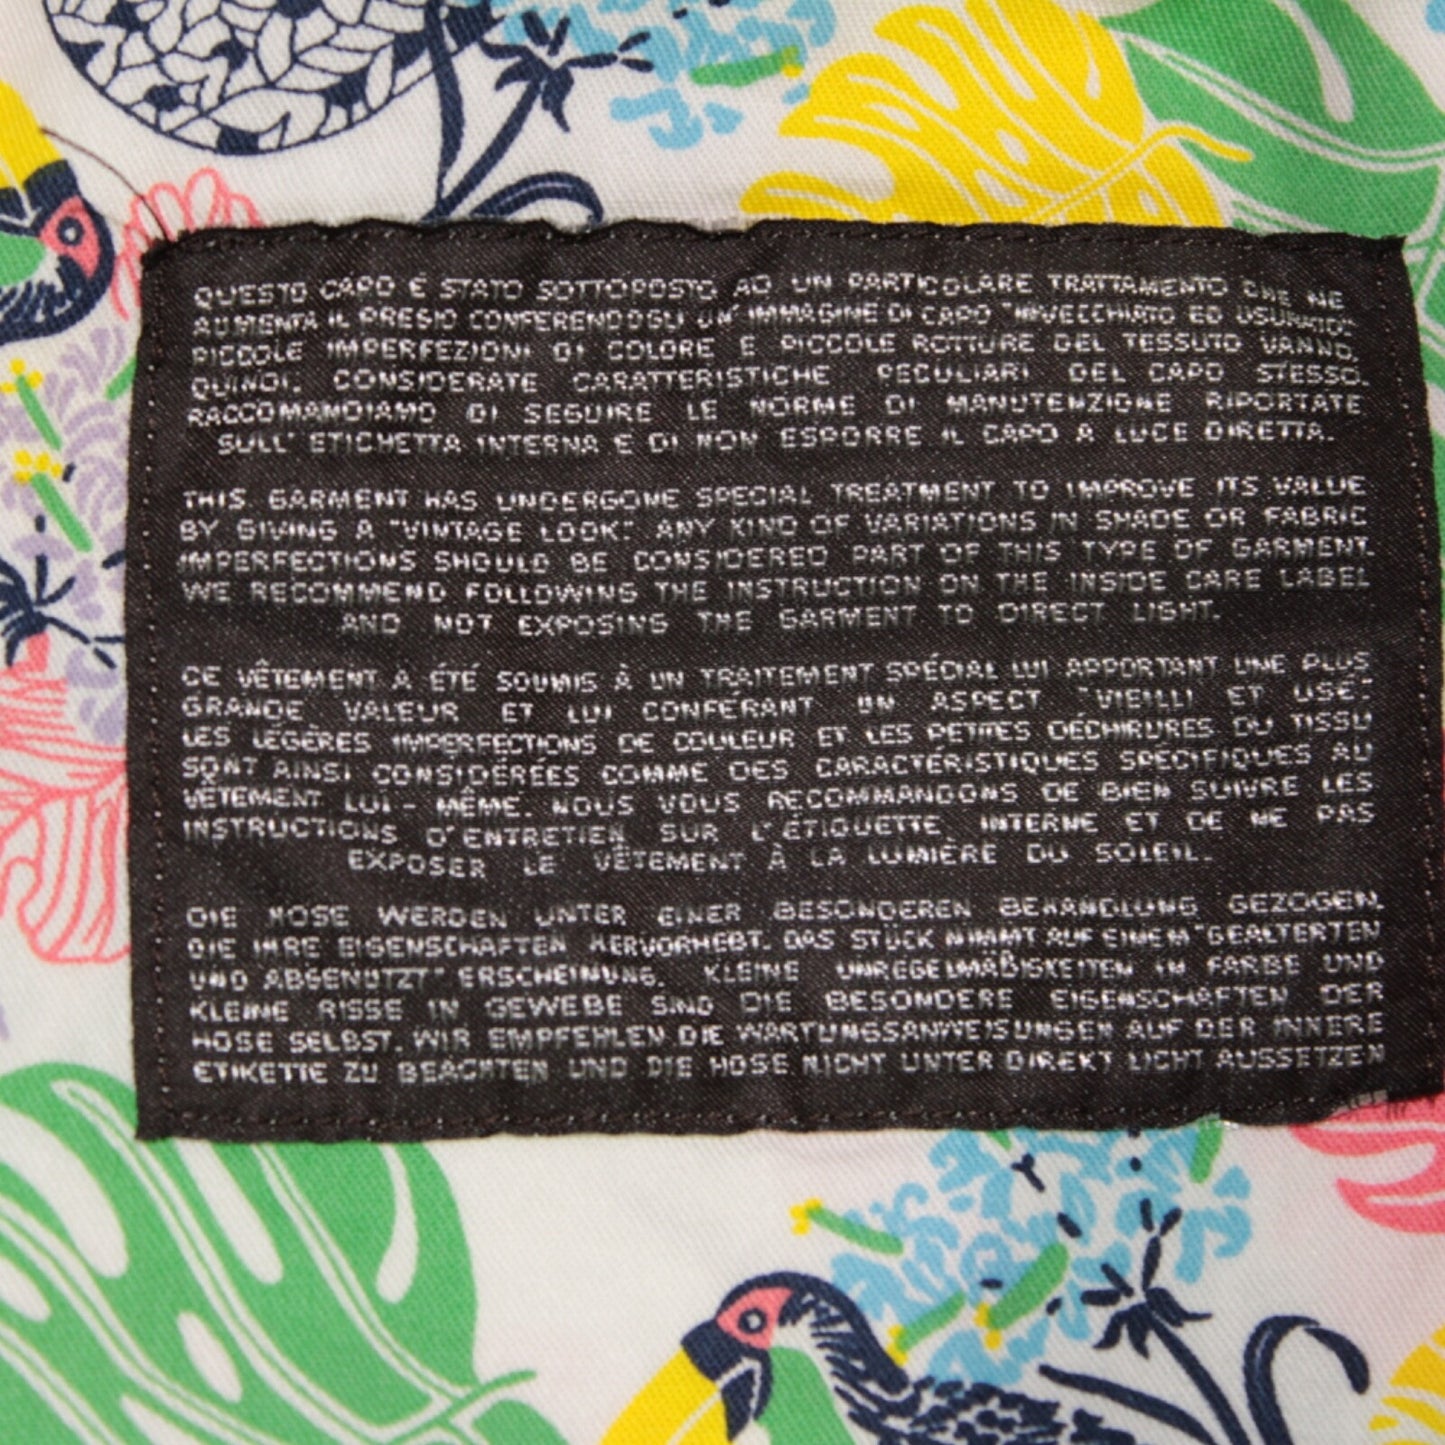 QUESTO CAPO È STATO SOTTOPOSTO AD UN PARTICOLARE TRATTAMENTO CHE NE
AUMENTA IL PREGIO CONFERENDOGLI UN'IMMAGINE DI CAPO "INVECCHIATO ED USURATO"
PICCOLE IMPERFEZIONI DI COLORE E PICCOLE ROTTURE DEL TESSUTO VANNO,
QUINDI, CONSIDERATE CARATTERISTICHE PECULIARI DEL CAPO STESSO.
RACCOMANDIAMO DI SEGUIRE LE NORME DI MANUTENZIONE RIPORTATE
SULL'ETICHETTA INTERNA E DI NON ESPORRE IL CAPO A LUCE DIRETTA.
THIS GARMENT HAS UNDERGONE SPECIAL TREATMENT TO IMPROVE ITS VALUE
BY GIVING A "VINTAGE LOOK". ANY KIND OF VARIATIONS IN SHADE OR FABRIC
IMPERFECTIONS SHOULD BE CONSIDERED PART OF THIS TYPE OF GARMENT.
WE RECOMMEND FOLLOWING THE INSTRUCTION ON THE INSIDE CARE LABEL
AND NOT EXPOSING THE GARMENT TO DIRECT LIGHT.
CE VÊTEMENT A ÉTÉ SOUMIS À UN TRAITEMENT SPÉCIAL LUI APPORTANT UNE PLUS
GRANDE VALEUR ET LUI CONFÉRANT UN ASPECT "VIEILLI ET USÉ".
LES LÉGÈRES IMPERFECTIONS DE COULEUR ET LES PETITES DÉCHIRURES DU TISSU
SONT AINSI CONSIDÉRÉES COMME DES CARACTÉRISTIQUES SPÉCIFIQUES AU
VÊTEMENT LUI-MÊME. NOUS VOUS RECOMMANDONS DE BIEN SUIVRE LES
INSTRUCTIONS D'ENTRETIEN SUR L'ÉTIQUETTE INTERNE ET DE NE PAS
EXPOSER LE VÊTEMENT À LA LUMIÈRE DU SOLEIL.
DIE HOSE WERDEN UNTER EINER BESONDEREN BEHANDLUNG GEZOGEN,
DIE IHRE EIGENSCHAFTEN HERVORHEBT. DAS STÜCK NIMMT AUF EINEM "GEALTERTEN
UND ABGENUTZT" ERSCHEINUNG. KLEINE UNREGELMÄßIGKEITEN IN FARBE UND
KLEINE RISSE IN GEWEBE SIND DIE BESONDERE EIGENSCHAFTEN DER
HOSE SELBST. WIR EMPFEHLEN DIE WARTUNGSANWEISUNGEN AUF DER INNERE
ETIKETTE ZU BEACHTEN UND DIE HOSE NICHT UNTER DIREKT LICHT AUSSETZEN